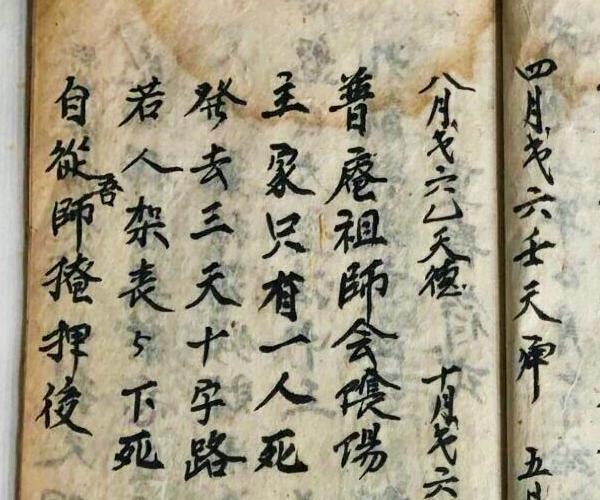 四月 六壬天 五
八月 六乙天德 十月 六
普庵祖師会陰陽
主家只有一人死
發去三天十字路
若人架丧 下死
自從吾師 押後